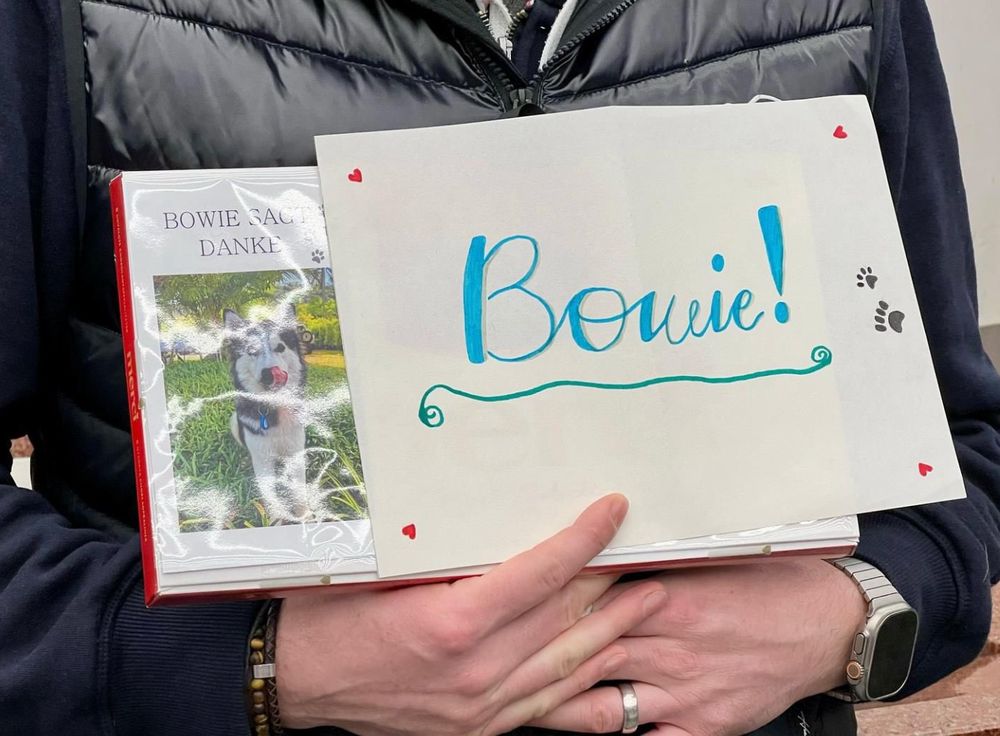 BOWIE SAGT
DANKE
Bowie!
merci